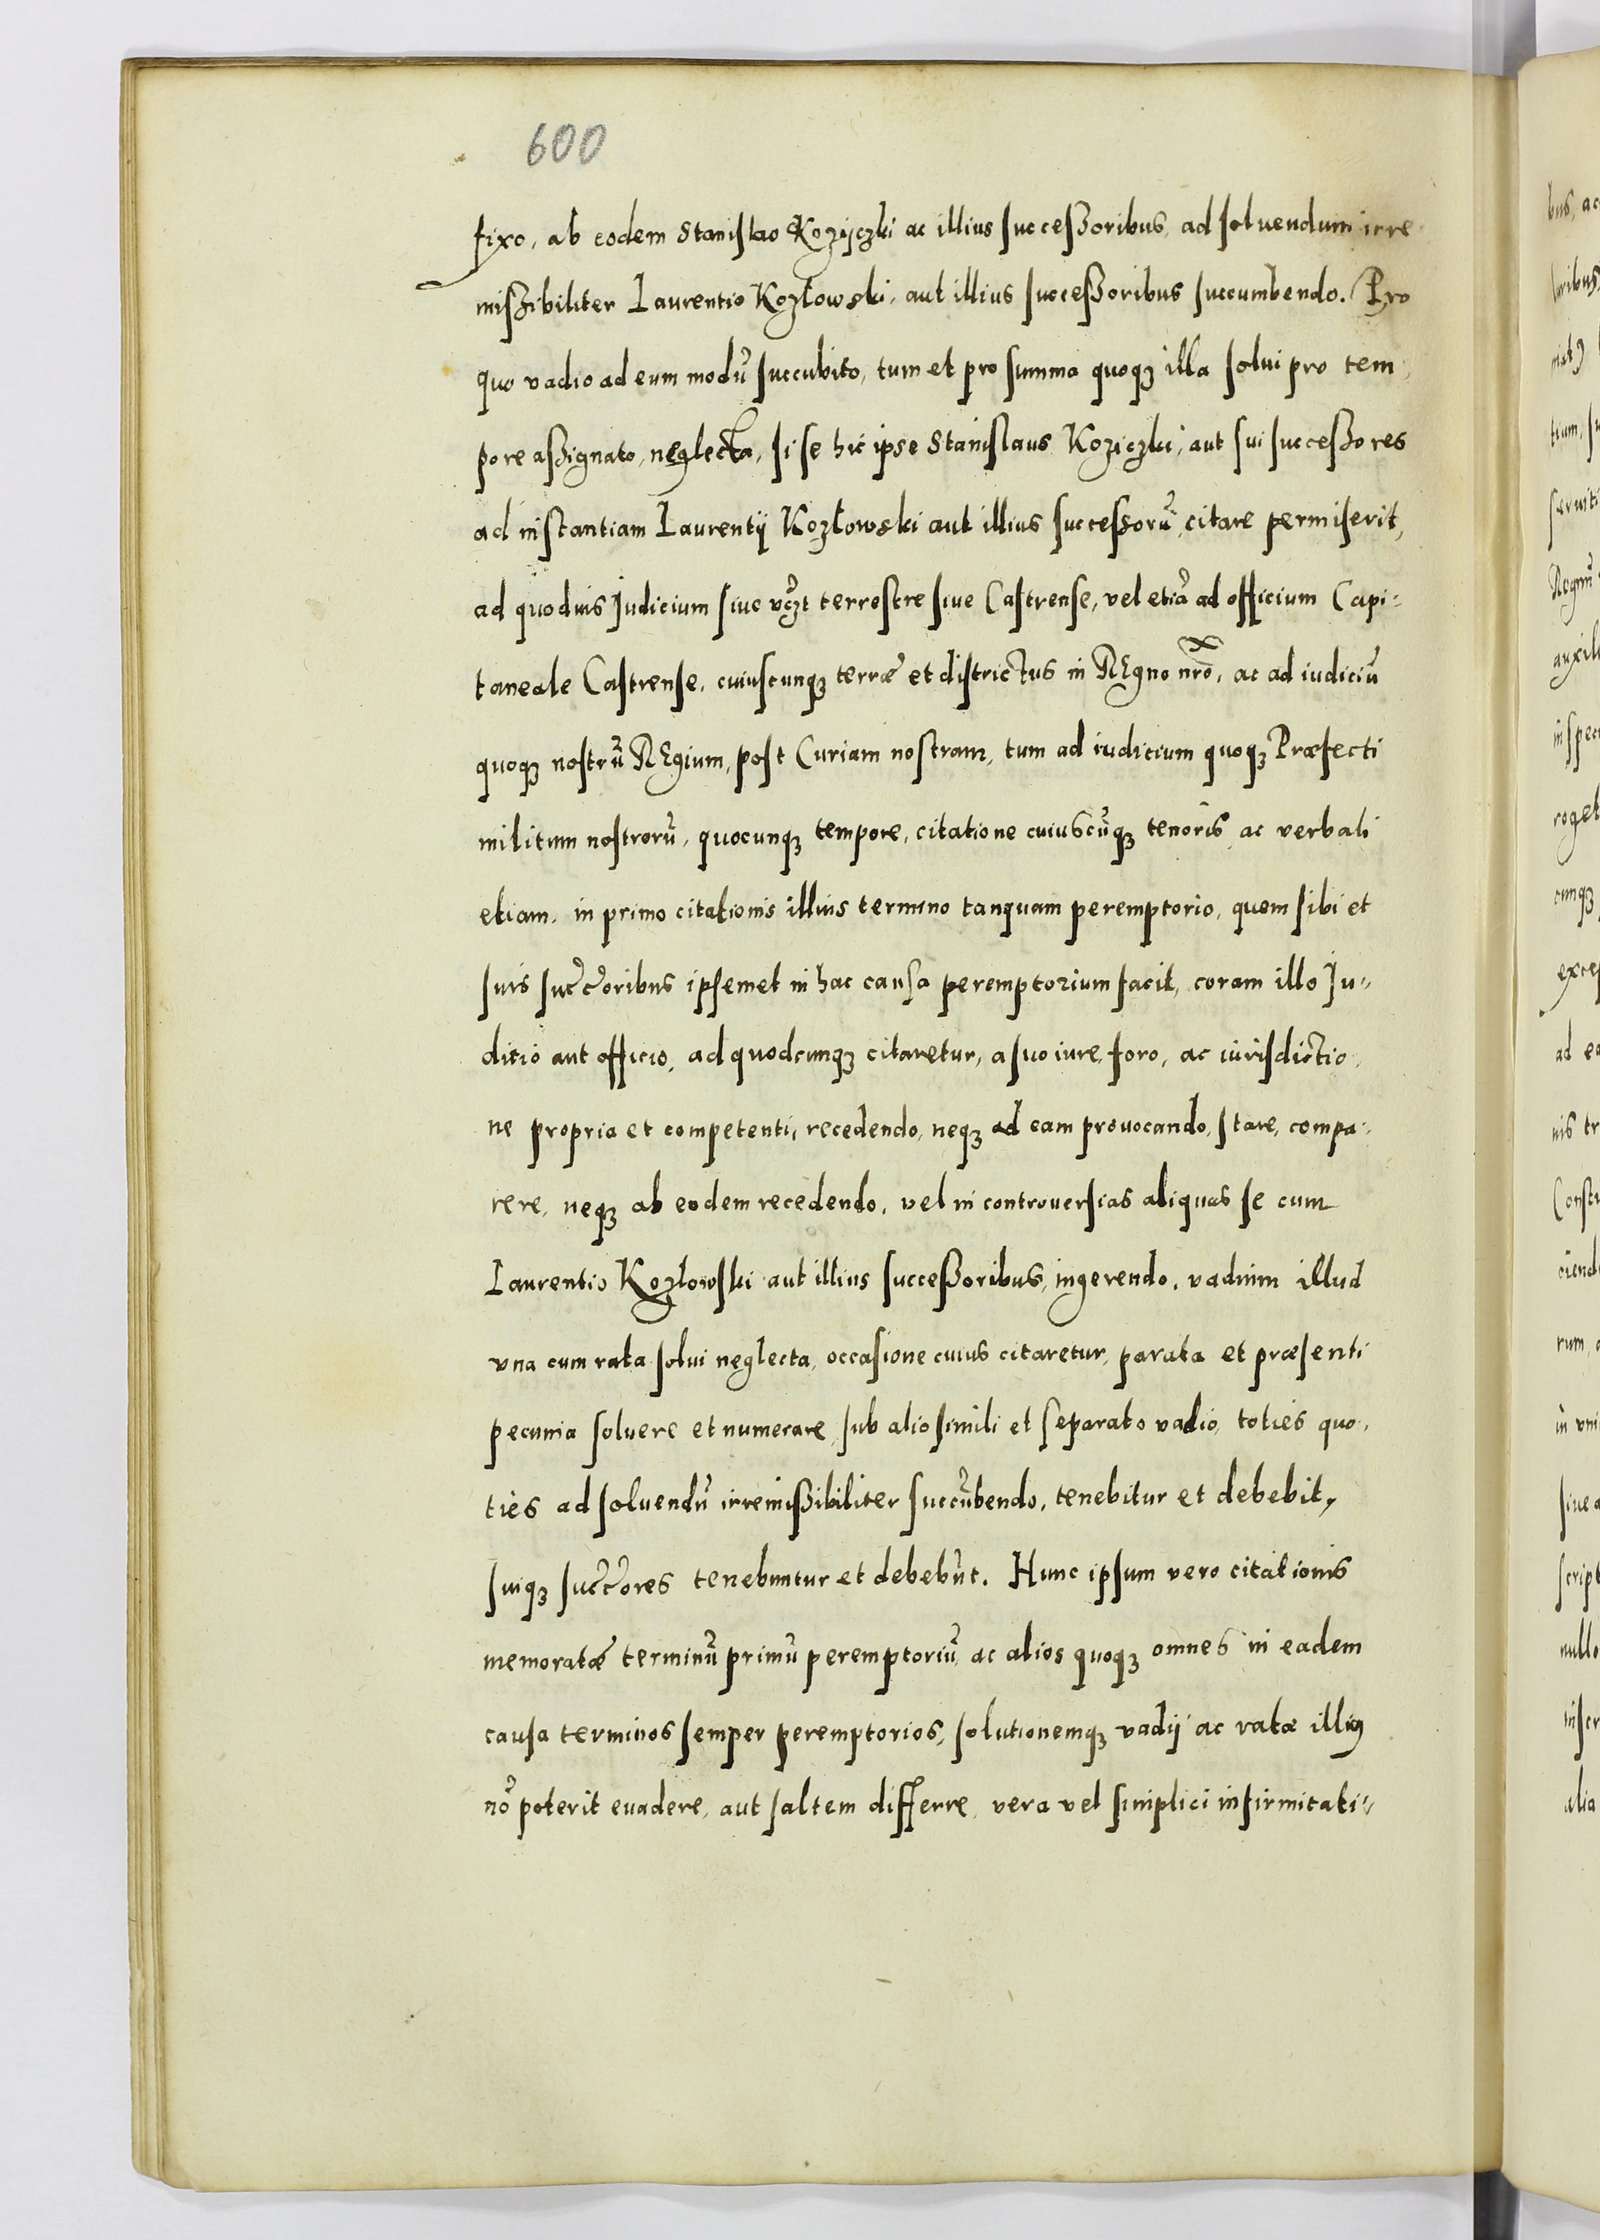 600
fixo, ab eodem Stanislao Kozijczki ac illius successoribus, ad soluendum irre
missibiliter Laurentio Kozlowski, aut illius successoribus succumbendo. Pro
quo vadio ad eum modũ succubito, tum et pro summa quoqꝫ illa solui pro tem,
pore assignato, neglecta, si se hic ipse Stanislaus Koziczki, aut sui successores
ad instantiam Laurentij Kozlowski aut illius successorũ, citare permiserit,
ad quoduis Judicium siue vcꝫt terrestre siue Castrense, vel etiã ad officium Capi:
taneale Castrense, cuiuscunqꝫ terræ et districtus in REgno nr̃o, ac ad iudiciũ
quoqꝫ nostrũ REgium, post Curiam nostram, tum ad iudicium quoqꝫ Præfecti
militum nostrorũ, quocunqꝫ tempore, citatione cuiuscũqꝫ tenoris, ac verbali
etiam, in primo citationis illius termino tanquam peremptorio, quem sibi et
suis succ̃oribus ipsemet in hac causa peremptorium facit, coram illo Ju"
ditio aut officio, ad quodcunqꝫ citaretur, a suo iure, foro, ac iurisdictio,
ne propria et competenti, recedendo, neqꝫ ad eam prouocando, stare, compa:
rere, neqꝫ ab eodem recedendo, vel in controuersias aliquas se cum
Laurentio Kozlowski aut illius successoribus, ingerendo, vadium illud
vna cum rata solui neglecta, occasione cuius citaretur, parata et præsenti
pecunia soluere et numerare, sub alio simili et separato vadio, toties quo,
ties ad soluendũ irremissibiliter succũbendo, tenebitur et debebit,
suiqꝫ succ̃ores tenebuntur et debebũt. Hunc ipsum vero citationis
memoratæ terminũ primũ peremptoriũ, ac alios quoqꝫ omnes in eadem
causa terminos semper peremptorios, solutionemqꝫ vadij ac ratæ illiꝰ
nõ poterit euadere, aut saltem differre, vera vel simplici infirmitati"